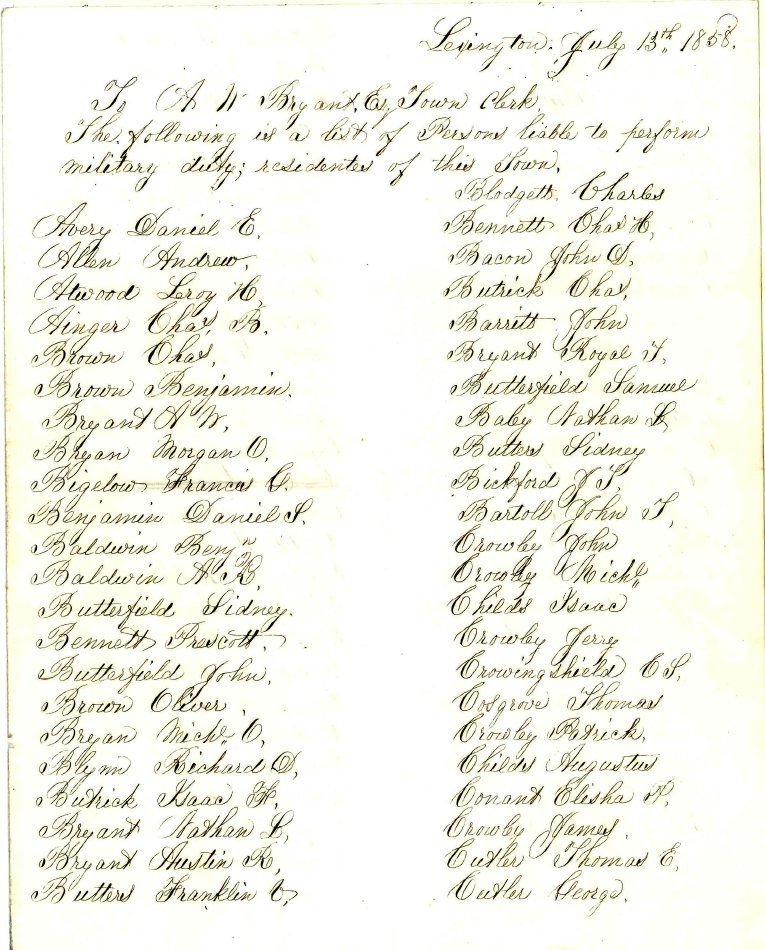 Lexington. July 13th, 1858.
To A W Bryant, Esq Town Clerk
The following is a list of Persons liable to perform
military duty; residentes of this Town.
Avery Daniel E.
Allen Andrew.
Atwood Leroy H.
Ainger Chas. B.
Brown Chas.
Brown Benjamin.
Bryant A W.
Bryan Morgan O.
Bigelow Francis C.
Benjamin Daniel S.
Baldwin Benjn
Baldwin A K.
Butterfield Sidney.
Bennett Prescott.
Butterfield John.
Brown Oliver.
Bryan Michl. O.
Blynn Richard D.
Butrick Isaac H.
Bryant Nathan L.
Bryant Austin R.
Butters Franklin
Blodgett. Charles
Bennett Chas H.
Bacon John D.
Butrick Chas.
Barritt John
Bryant Royal T.
Butterfield Samuel
Baby Nathan L
Butters Sidney
Bickford J S.
Bartoll John T.
Crowley John
Crowley Michl.
Childs Isaac
Crowley Jerry
Crowingshield E S.
Cosgrove Thomas
Crowley Patrick.
Childs Augustus
Conant Elisha P.
Crowley James.
Cutler Thomas E.
Cutler George.